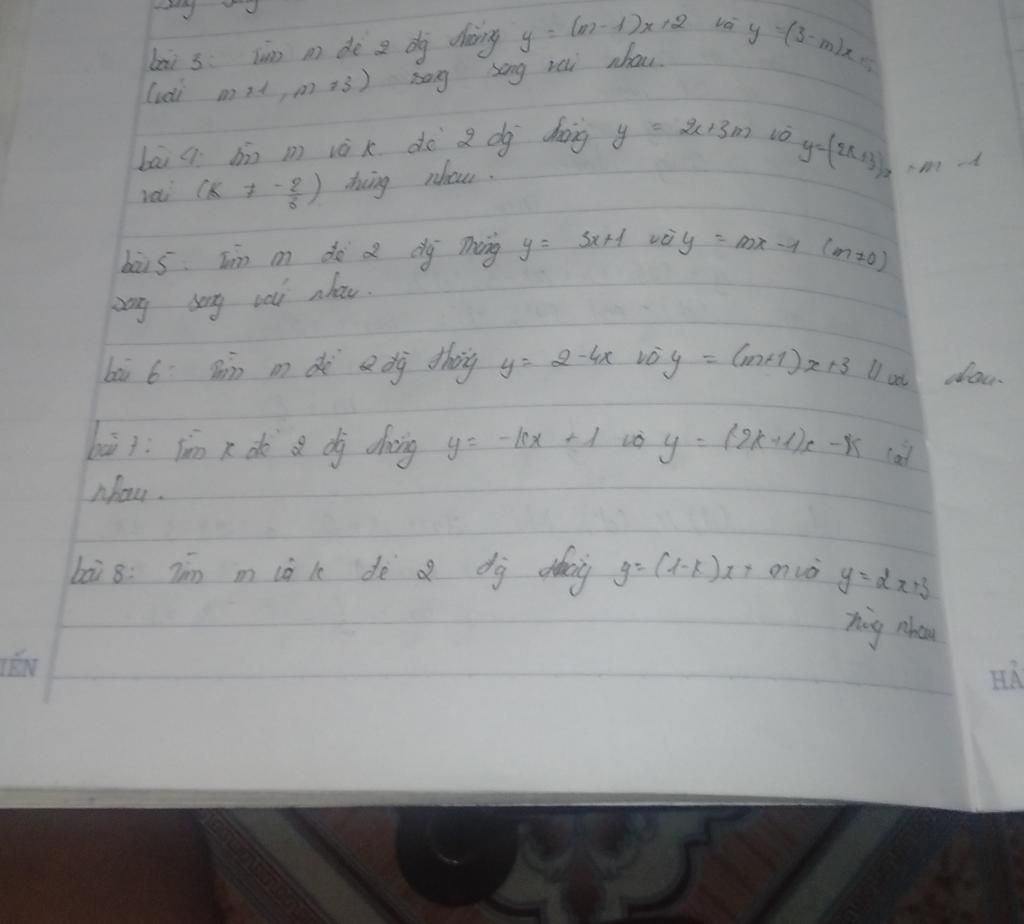 bài 3: Tìm m để 2 đg thẳng y = (m-1)x+2 và y =(3-m)x
(với m≠1, m≠3) song song với nhau.
bài 4: tìm m và k để 2 đg thẳng y = 2x+3m và y=(2k+3)x +m -1
với (k ≠ - ) trùng nhau.
bài 5: Tìm m để 2 đg thẳng y = 3x+1 và y = mx-1 (m≠0)
song song với nhau.
bài 6: Tìm m để 2 đg thẳng y = 2-4x và y = (m+1)x+3 // nhau.
bài 7: Tìm k để 2 đg thẳng y = -kx + 1 và y = (2k+1)x cắt
nhau.
bài 8: Tìm m và k để 2 đg thẳng y=(1-k)x+ m và y = 2x+3
trùng nhau
IẾN
HẢ